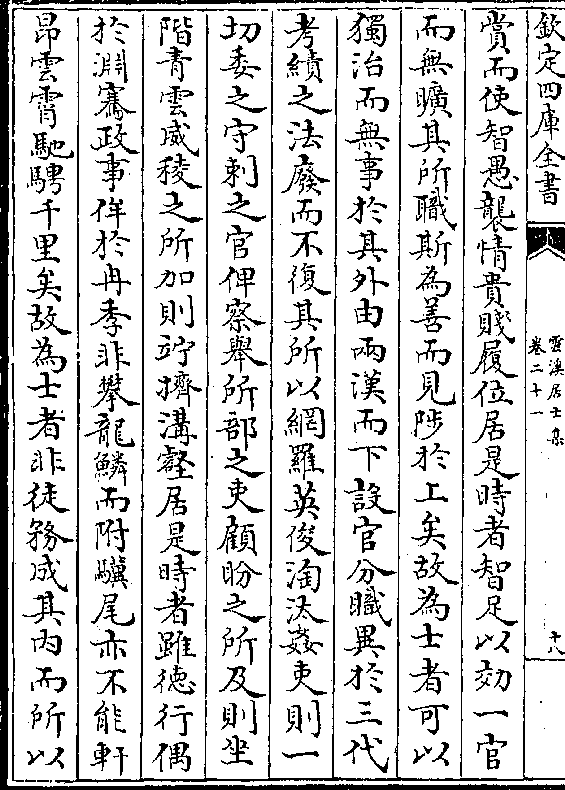 欽定四庫全書
雲溪居士集
卷二十一
十八
賞而使智愚襲情貴賤履位居是時者智足以効一官
而無曠其所職斯為善而見陟於上矣故為士者可以
獨治而無事於其外由兩漢而下設官分職異於三代
考績之法廢而不復其所以網羅英俊淘汰姦吏則一
切委之守刺之官俾察舉所部之吏顧盼之所及則坐
階青雲威稜之所加則竚擠溝壑居是時者雖德行偶
於淵騫政事侔於冉季非攀龍鱗而附驥尾亦不能軒
昂雲霄馳騁千里矣故為士者非徒務成其内而所以